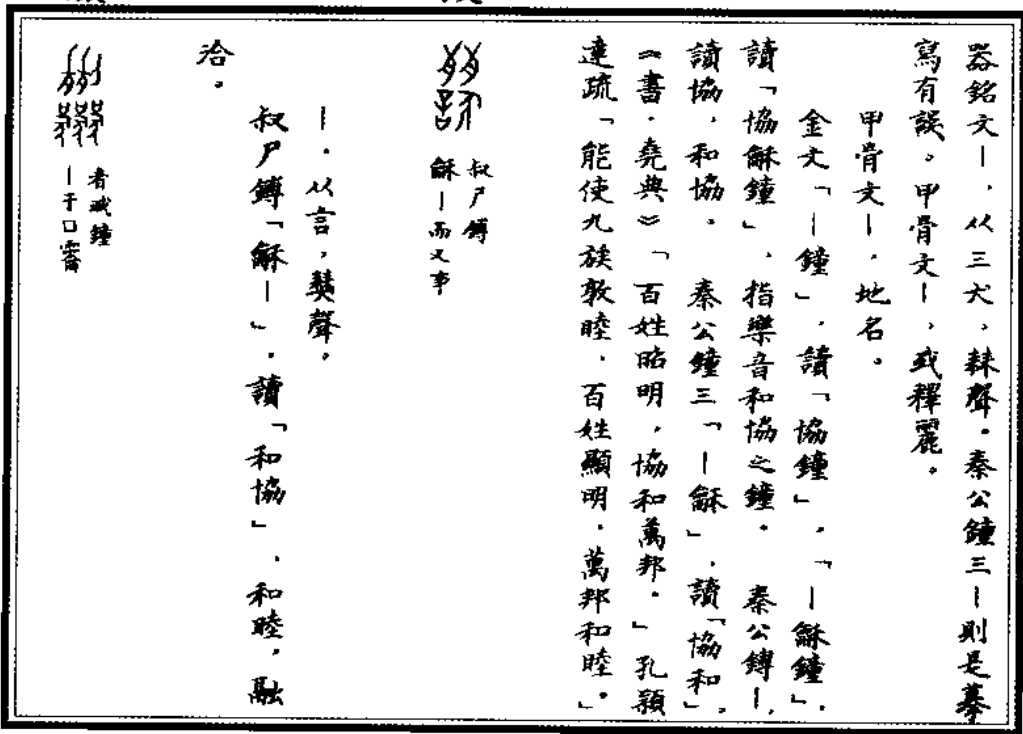 器銘文—，从三犬，秝聲。秦公鐘三—則是摹
寫有誤。甲骨文—，或釋麗。
甲骨文—，地名。
金文「—鐘」，讀「協鐘」，「—龢鐘」，
讀「協龢鐘」，指樂音和協之鐘。秦公鎛—，
讀協，和協。秦公鐘三「—龢」，讀「協和」，
《書·堯典》「百姓昭明，協和萬邦。」孔穎
達疏「能使九族敦睦，百姓顯明，萬邦和睦。」
叔尸鎛
龢—而又事
—，从言，聲。
叔尸鎛「龢—」，讀「和協」，和睦，融
洽。
者鐘
—于口